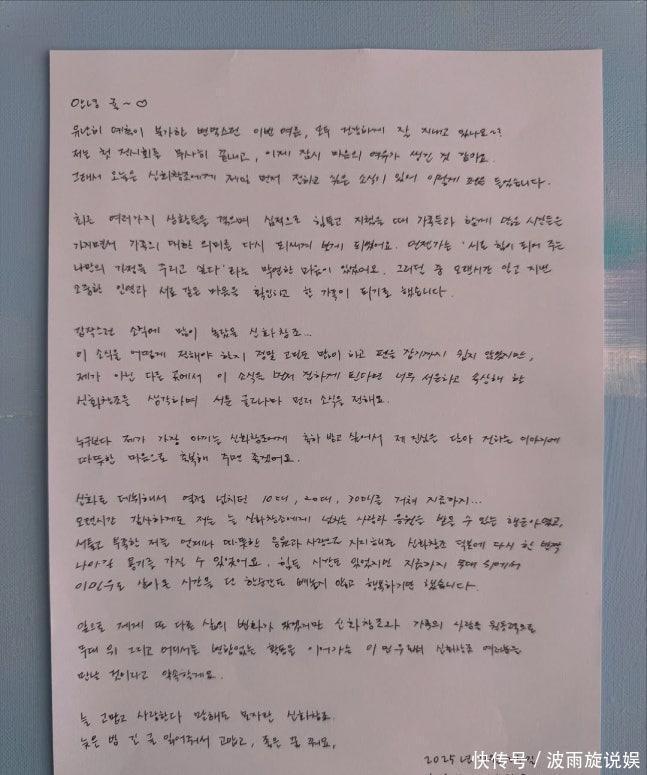 안녕 귤~♡
유난히 예측이 불가한 변덕스런 이번 여름, 모두 건강하게 잘 지내고 있나요~?
저는 첫 전시회를 무사히 끝내고, 이제 잠시 마음의 여유가 생긴 것 같아요.
그래서 오늘은 신화창조에게 제일 먼저 전하고 싶은 소식이 있어 이렇게 펜을 들었습니다.
최근 여러가지 상황들을 겪으며 심적으로 힘들고 지쳤을 때 가족들과 함께 많은 시간들을
가지면서 가족의 대한 의미를 다시 되새겨 보게 되었어요. 언젠가는 '서로 힘이 되어 주는
나만의 가정을 꾸리고 싶다' 라는 막연한 마음이 있었어요. 그러던 중 오랜시간 알고 지낸
소중한 인연과 서로 같은 마음을 확인하고 한 가족이 되기로 했습니다.
갑작스런 소식에 많이 놀랐을 신화창조...
이 소식을 어떻게 전해야 할지 정말 고민도 많이 하고 펜을 잡기까지 쉽지 않았지만,
제가 아닌 다른 곳에서 이 소식을 먼저 전하게 된다면 너무 서운하고 속상해 할
신화창조를 생각하며 서툰 글로나마 먼저 소식을 전해요.
누구보다 제가 가장 아끼는 신화창조에게 축하 받고 싶어서 제 진심을 담아 전하는 이야기에
따뜻한 마음으로 축복해 주면 좋겠어요.
신화로 데뷔해서 열정 넘치던 10대, 20대, 30대를 거쳐 지금까지...
오랜시간 감사하게도 저는 늘 신화창조에게 넘치는 사랑과 응원을 받을 수 있는 행운아였고,
서툴고 부족한 저를 언제나 따뜻한 응원과 사랑으로 지지해준 신화창조 덕분에 다시 한 번 더
나아갈 용기를 가질 수 있었어요. 힘든 시간도 있었지만 지금까지 무대 위에서
이민우로 살아온 시간을 단 한순간도 빼놓지 않고 행복하기만 했습니다.
앞으로 제게 또 다른 삶의 변화가 있겠지만 신화창조와 가족의 사랑을 원동력으로
무대 위 그리고 어디서든 변함없는 활동을 이어가는 이민우로 신화창조 여러분을
만날 것이라고 약속할게요.
늘 고맙고 사랑한다 말해도 모자란 신화창조.
늦은 밤 긴 글 읽어줘서 고맙고, 좋은 꿈 꿔요.
2025년
快传号 / 波雨旋说娱